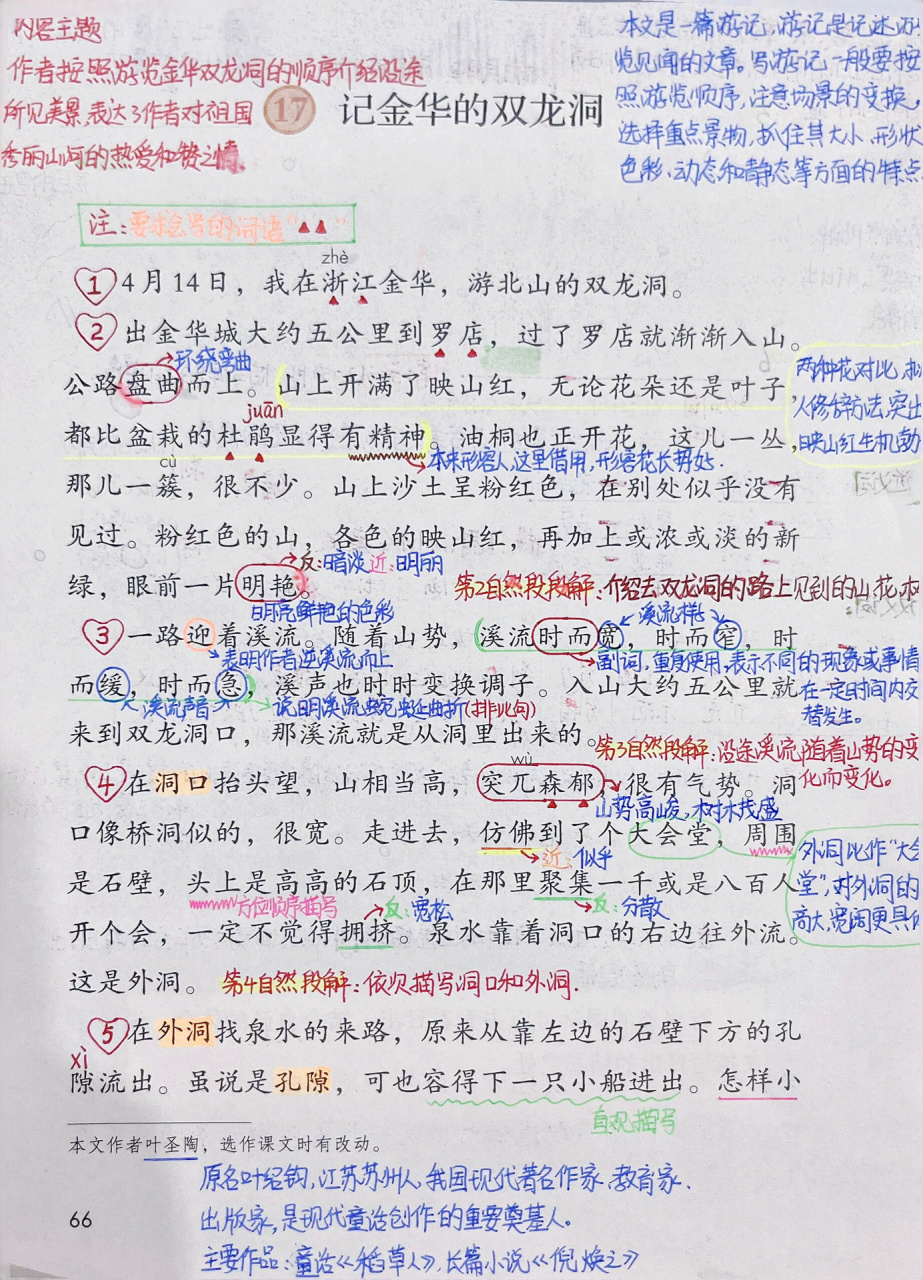 内容主题
作者按照游览金华双龙洞的顺序介绍沿途
所见美景,表达了作者对祖国
秀丽山河的热爱和赞之情.
本文是一篇游记,游记是记述
览见闻的文章。写游记一般要按
照游览顺序,注意场景的变换,
选择重点景物,抓住其大小、形状
色彩、动态和静态等方面的特点
17 记金华的双龙洞
注:要求会写的词语“▲▲”
zhè
①4月14日,我在浙江金华,游北山的双龙洞。
②出金华城大约五公里到罗店,过了罗店就渐渐入山。
环绕弯曲
公路盘曲而上。山上开满了映山红,无论花朵还是叶子,
两种花对比,
人修辞方法,突出
映山红生机勃
juān
都比盆栽的杜鹃显得有精神。油桐也正开花,这儿一丛,
本来形容人,这里借用,形容花长势好.
cù
那儿一簇,很不少。山上沙土呈粉红色,在别处似乎没有
见过。粉红色的山,各色的映山红,再加上或浓或淡的新
反:暗淡 近:明丽
绿,眼前一片明艳。
第2自然段段解:介绍去双龙洞的路上见到的山,花,
明亮鲜艳的色彩
溪流样
③一路迎着溪流。随着山势,溪流时而宽,时而窄,时
表明作者逆溪流而上
副词,重复使用,表示不同的现象或事情
在一定时间内交
替发生。
而缓,时而急,溪声也时时变换调子。入山大约五公里就
溪流声音
说明溪流蜿蜒曲折(排比句)
来到双龙洞口,那溪流就是从洞里出来的。
第3自然段解:沿途溪流随着山势的变
化而变化。
wù
④在洞口抬头望,山相当高,突兀森郁,很有气势。洞
山势高峻,树木茂盛
口像桥洞似的,很宽。走进去,仿佛到了个大会堂,周围
近:似乎
外洞比作“大会
堂”,对外洞的
高大,宽阔更具体
是石壁,头上是高高的石顶,在那里聚集一千或是八百人
方位顺序描写
反:宽松
反:分散
开个会,一定不觉得拥挤。泉水靠着洞口的右边往外流。
这是外洞。
第4自然段解:依次描写洞口和外洞.
⑤在外洞找泉水的来路,原来从靠左边的石壁下方的孔
xì
隙流出。虽说是孔隙,可也容得下一只小船进出。怎样小
直观描写
本文作者叶圣陶,选作课文时有改动。
原名叶绍钧,江苏苏州人,我国现代著名作家、教育家.
出版家,是现代童话创作的重要奠基人。
主要作品:童话《稻草人》,长篇小说《倪焕之》
66